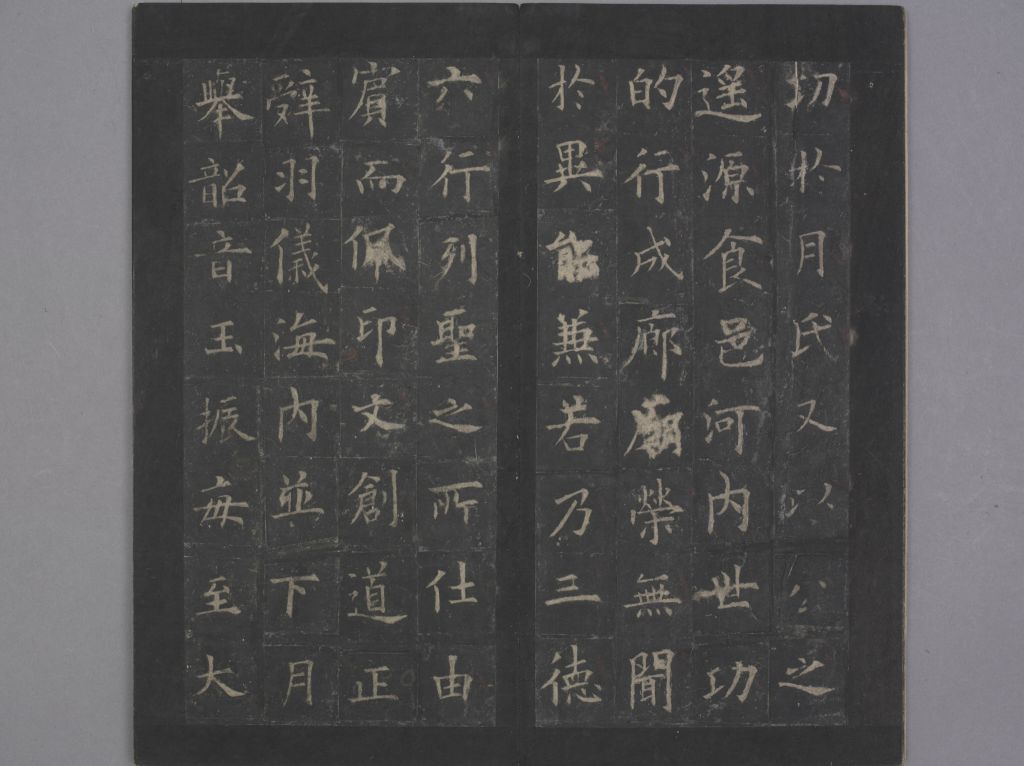 切於月氏又以公之
遥源食邑河内世功
的行成廊廟榮無聞
於異能兼若乃三德
六行列聖之所仕由
賔而佩印文創道正
辭羽儀海内並下月
舉韶音玉振每至大